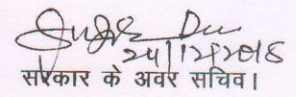 24/12/2018
सरकार के अवर सचिव।